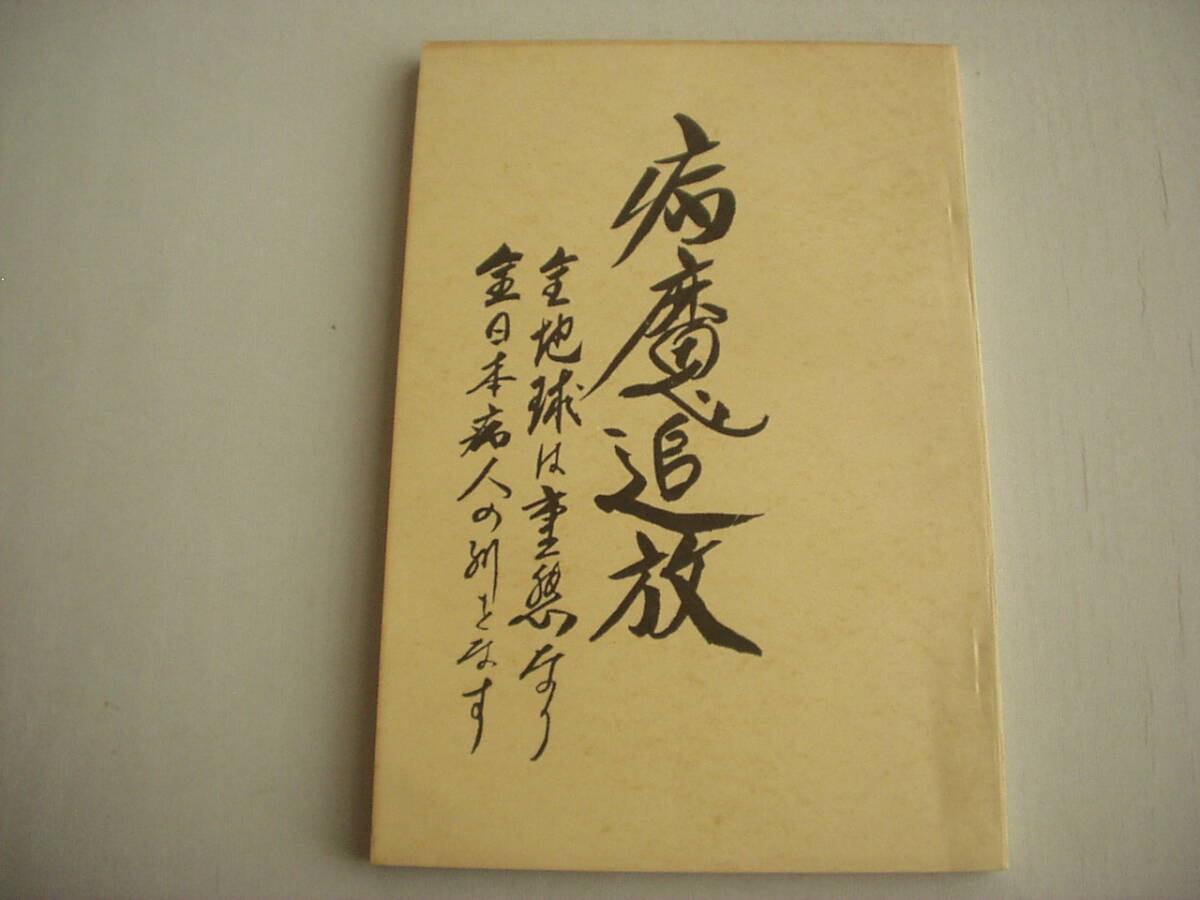 病魔追放
全地球は重態なり
全日本病人の列をなす